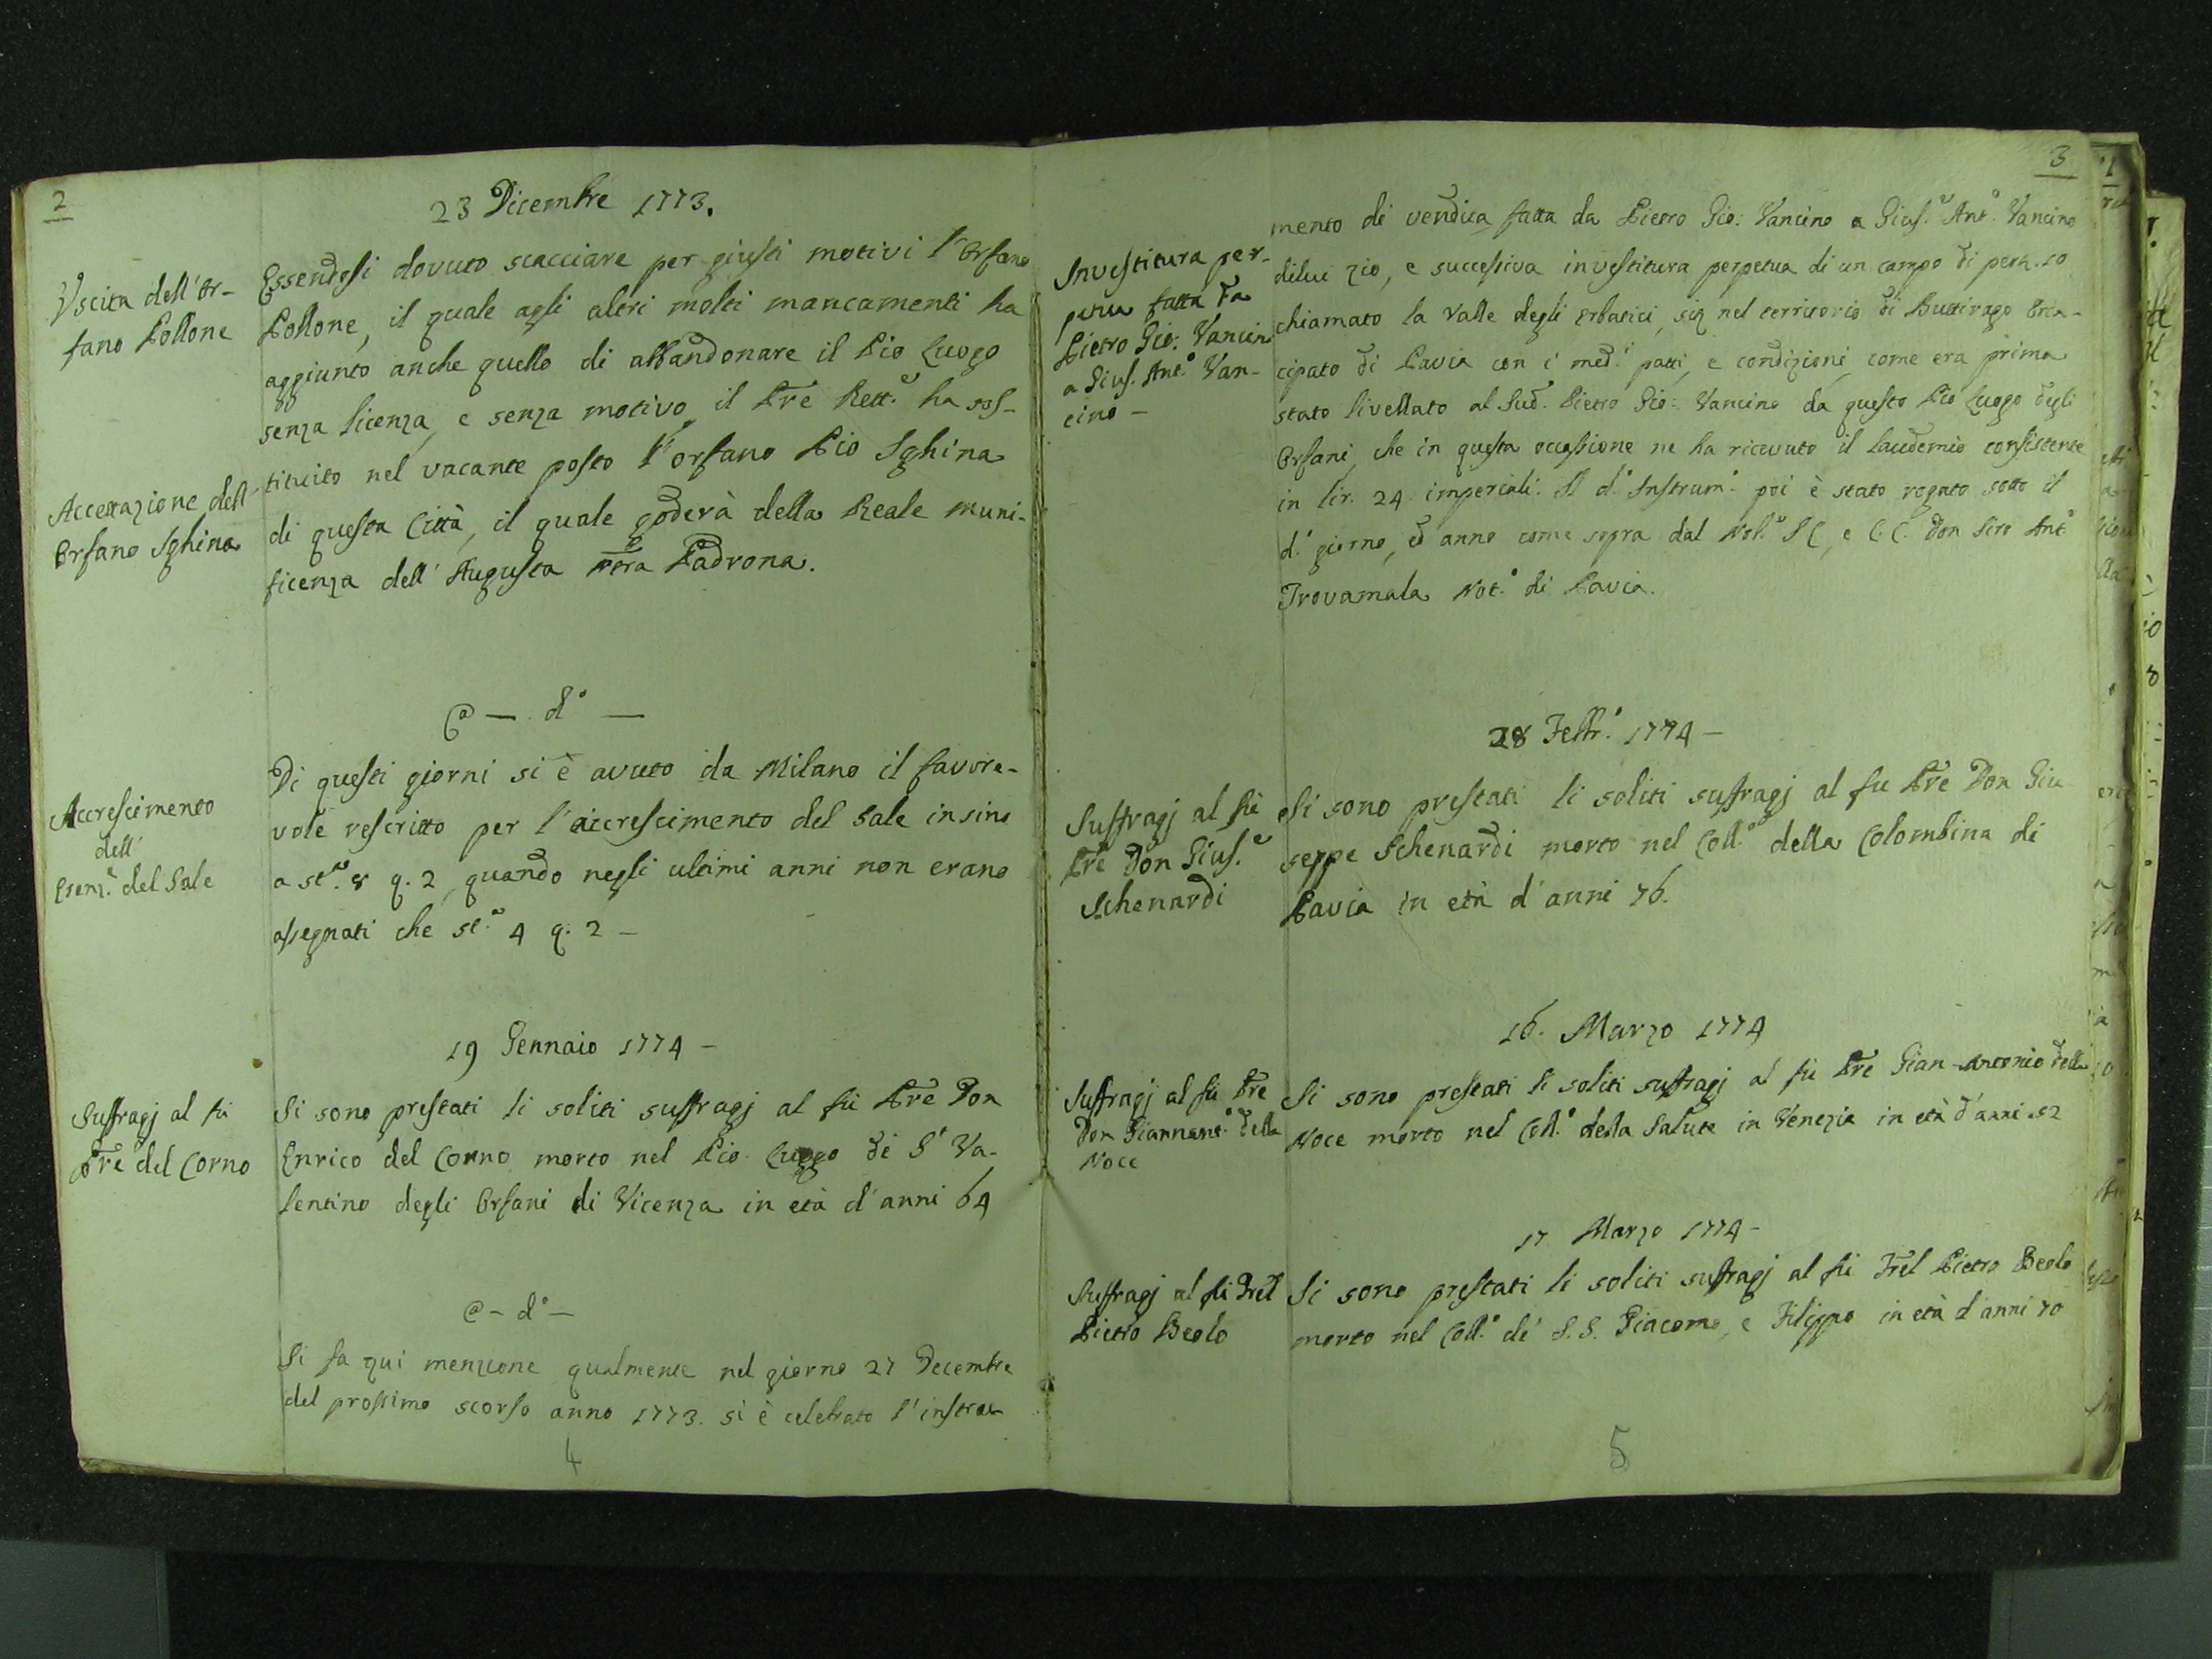 2
23 Dicembre 1773.
Uscita dell'Or-
fano Pollone
Essendosi dovuto scacciare per giusti motivi l'Orfano
Pollone, il quale agli altri molti mancamenti ha
aggiunto anche quello di abbandonare il Pio Luogo
senza licenza, e senza motivo, il Pre Rett.e ha sos-
Accettazione dell'
Orfano Sghina
tituito nel vacante posto l'orfano Pio Sghina
di questa Città, il quale goderà della Reale muni-
ficenza dell'Augusta Padrona.
@ — d.o —
Accrescimento
dell'
Esenz.e del Sale
Di questi giorni si è avuto da Milano il favore-
vole rescritto per l'accrescimento del Sale insino
a st.a 8 q. 2, quando negli ultimi anni non erano
assegnati che st.a 4 q. 2 —
19 Gennaio 1774 —
Suffragj al fù
Pre del Corno
Si sono prestati li soliti suffragj al fù Pre Don
Enrico del Corno morto nel Pio Luogo di S. Va-
lentino degli Orfani di Vicenza in età d'anni 64
@ — d.o —
Si fa qui menzione qualmente nel giorno 27 Decembre
del prossimo scorso anno 1773. si è celebrato l'instru-
4
3
Investitura per-
petua fatta da
Pietro Gio: Vancino
a Gius. Ant.o Van-
cino —
mento di vendita fatta da Pietro Gio: Vancino a Gius.e Ant.o Vancino
dilui zio, e successiva investitura perpetua di un campo di pert. 10
chiamato la Valle degli Erbatici, nel territorio di Buttirago
cipato di Pavia con i med.i patti, e condizioni, come era prima
stato livellato al Sud.o Pietro Gio: Vancino da questo Pio Luogo degli
Orfani, che in questa occasione ne ha ricevuto il laudemio consistente
in lir. 24. imperiali. Il d.o Instrum.o poi è stato rogato sotto il
d.o giorno, ed anno come sopra dal Not.o e C.C. Don Siro Ant.o
Trovamala Not.o di Pavia.
28 Febbr.o 1774 —
Suffragj al fù
Pre Don Gius.e
Schenardi
Si sono prestati li soliti suffragj al fu Pre Don Giu
seppe Schenardi morto nel Coll.o della Colombina di
Pavia in età d'anni 76.
16. Marzo 1774
Suffragj al fù Pre
Don Giannant.o della
Noce
Si sono prestati li soliti suffragj al fù Pre Gian-Antonio della
Noce morto nel Coll.o della Salute in Venezia in età d'anni 52
17 Marzo 1774 —
Suffragj al fù Frel
Pietro Beolo
Si sono prestati li soliti suffragj al fù Frel Pietro Beolo
morto nel Coll.o de' S.S. Giacomo, e Filippo in età d'anni 70
5